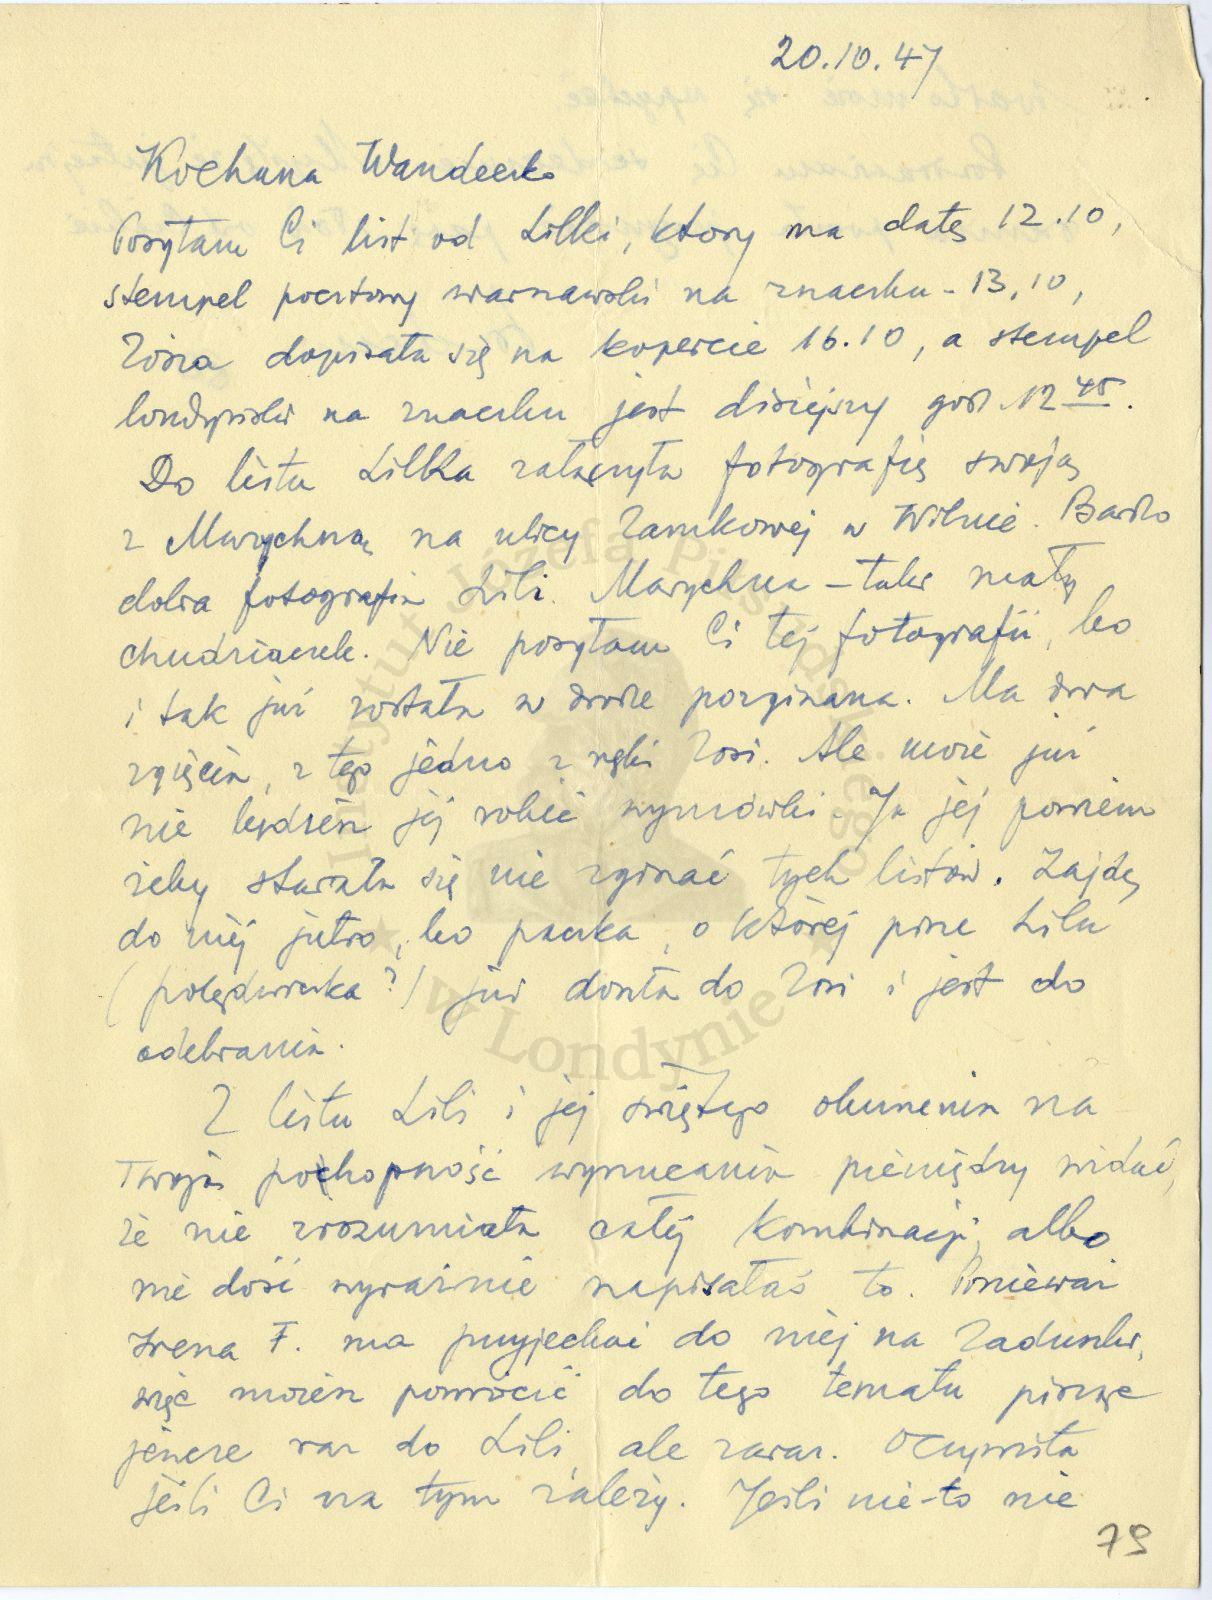 20.10.47
Kochana Wandeczko
Posyłam Ci list od Lilki, który ma datę 12.10,
stempel pocztowy warszawski na znaczku - 13.10,
Zosia dopisała się na kopercie 16.10, a stempel
londyński na znaczku jest dzisiejszy godz. 12 45.
Do listu Lilka załączyła fotografię swoją
z Marychną na ulicy Zamkowej w Wilnie. Bardzo
dobra fotografia Lili. Marychna - taki mały
chudziaczek. Nie posyłam Ci tej fotografii, bo
i tak już została w drodze pozginana. Ma dwa
zgięcia, z tego jedno z ręki Zosi. Ale może już
nie będziesz jej robić wymówki. Ja jej powiem
żeby starała się nie zginać tych listów. Zajdę
do niej jutro, bo paczka, o której pisze Lila
(polędwiczka?) już doszła do Zosi i jest do
odebrania.
Z listu Lili i jej świętego oburzenia na
Twoją pochopność wyrzucania pieniędzy widać,
że nie zrozumiała całej kombinacji, albo
nie dość wyraźnie napisałaś to. Ponieważ
Irena F. ma przyjechać do niej na Zaduszki,
więc możesz powrócić do tego tematu pisząc
jeszcze raz do Lili, ale zaraz. Oczywista
jeśli Ci na tym zależy. Jeśli nie - to nie
79
Instytut Józefa Piłsudskiego
w Londynie